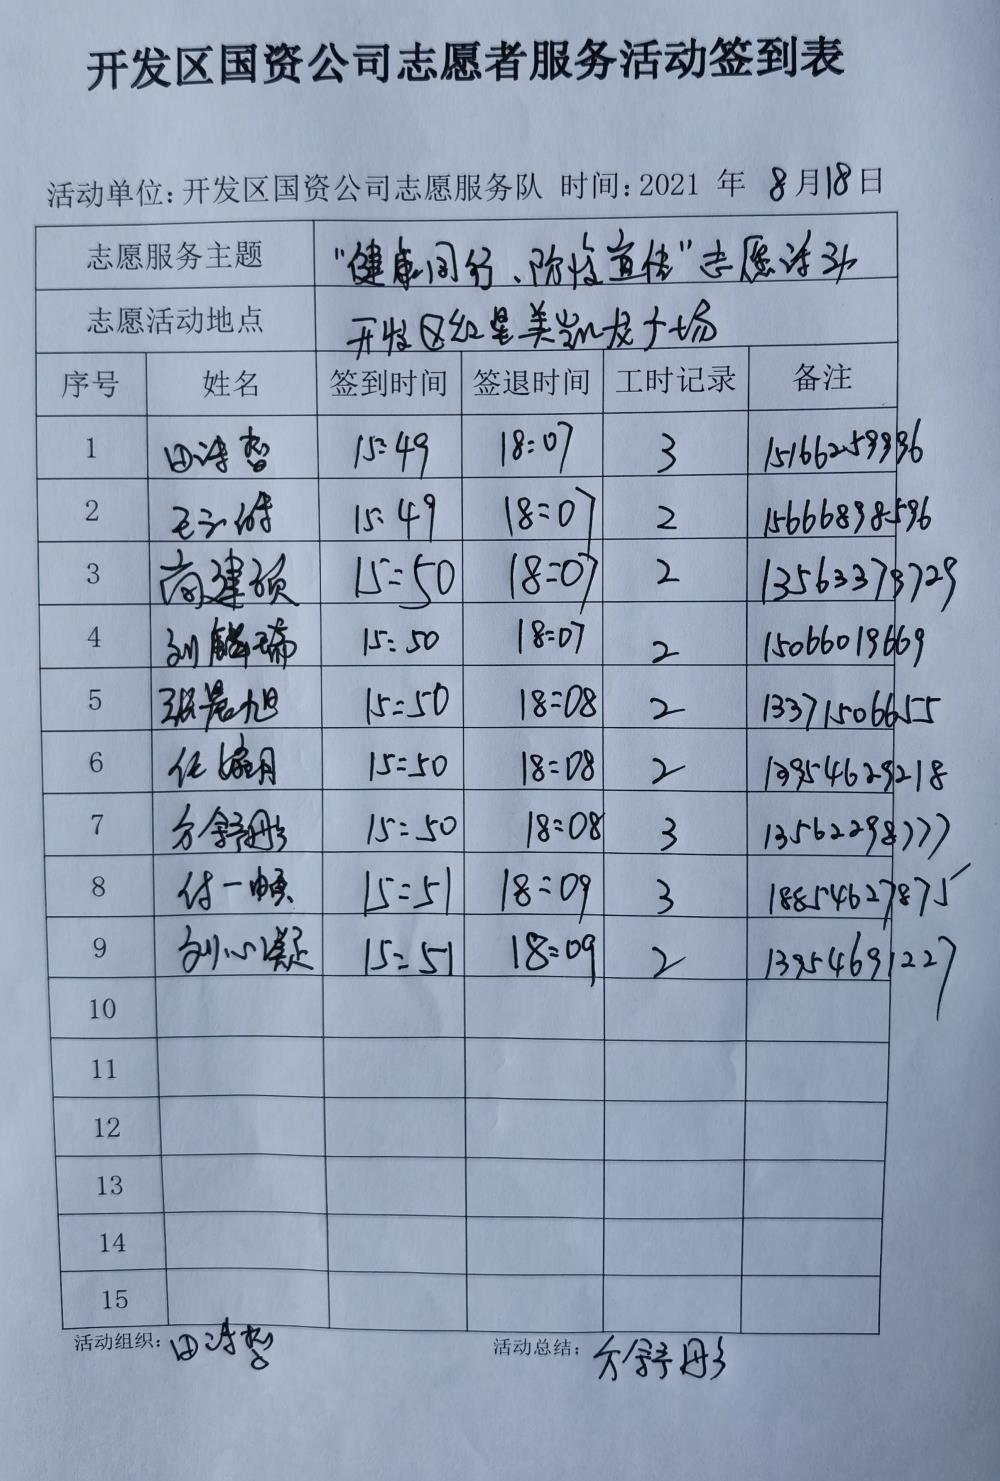 开发区国资公司志愿者服务活动签到表
活动单位:开发区国资公司志愿服务队 时间:2021 年 8月18日
志愿服务主题 "健康同行、防疫宣传"志愿活动
志愿活动地点 开发区红星美凯龙广场
序号 姓名 签到时间 签退时间 工时记录 备注
1 田涛哲 15:49 18:07 3 15166259996
2 15:49 18:07 2 15666898596
3 尚建硕 15:50 18:07 2 13563379729
4 刘麟瑞 15:50 18:07 2 15066019669
5 张晨旭 15:50 18:08 2 13371506655
6 15:50 18:08 2 13954629218
7 方舒彤 15:50 18:08 3 13562298777
8 付一顺 15:51 18:09 3 18854627875
9 刘心凝 15:51 18:09 2 13954691227
10
11
12
13
14
15
活动组织: 田涛哲 活动总结: 方舒彤